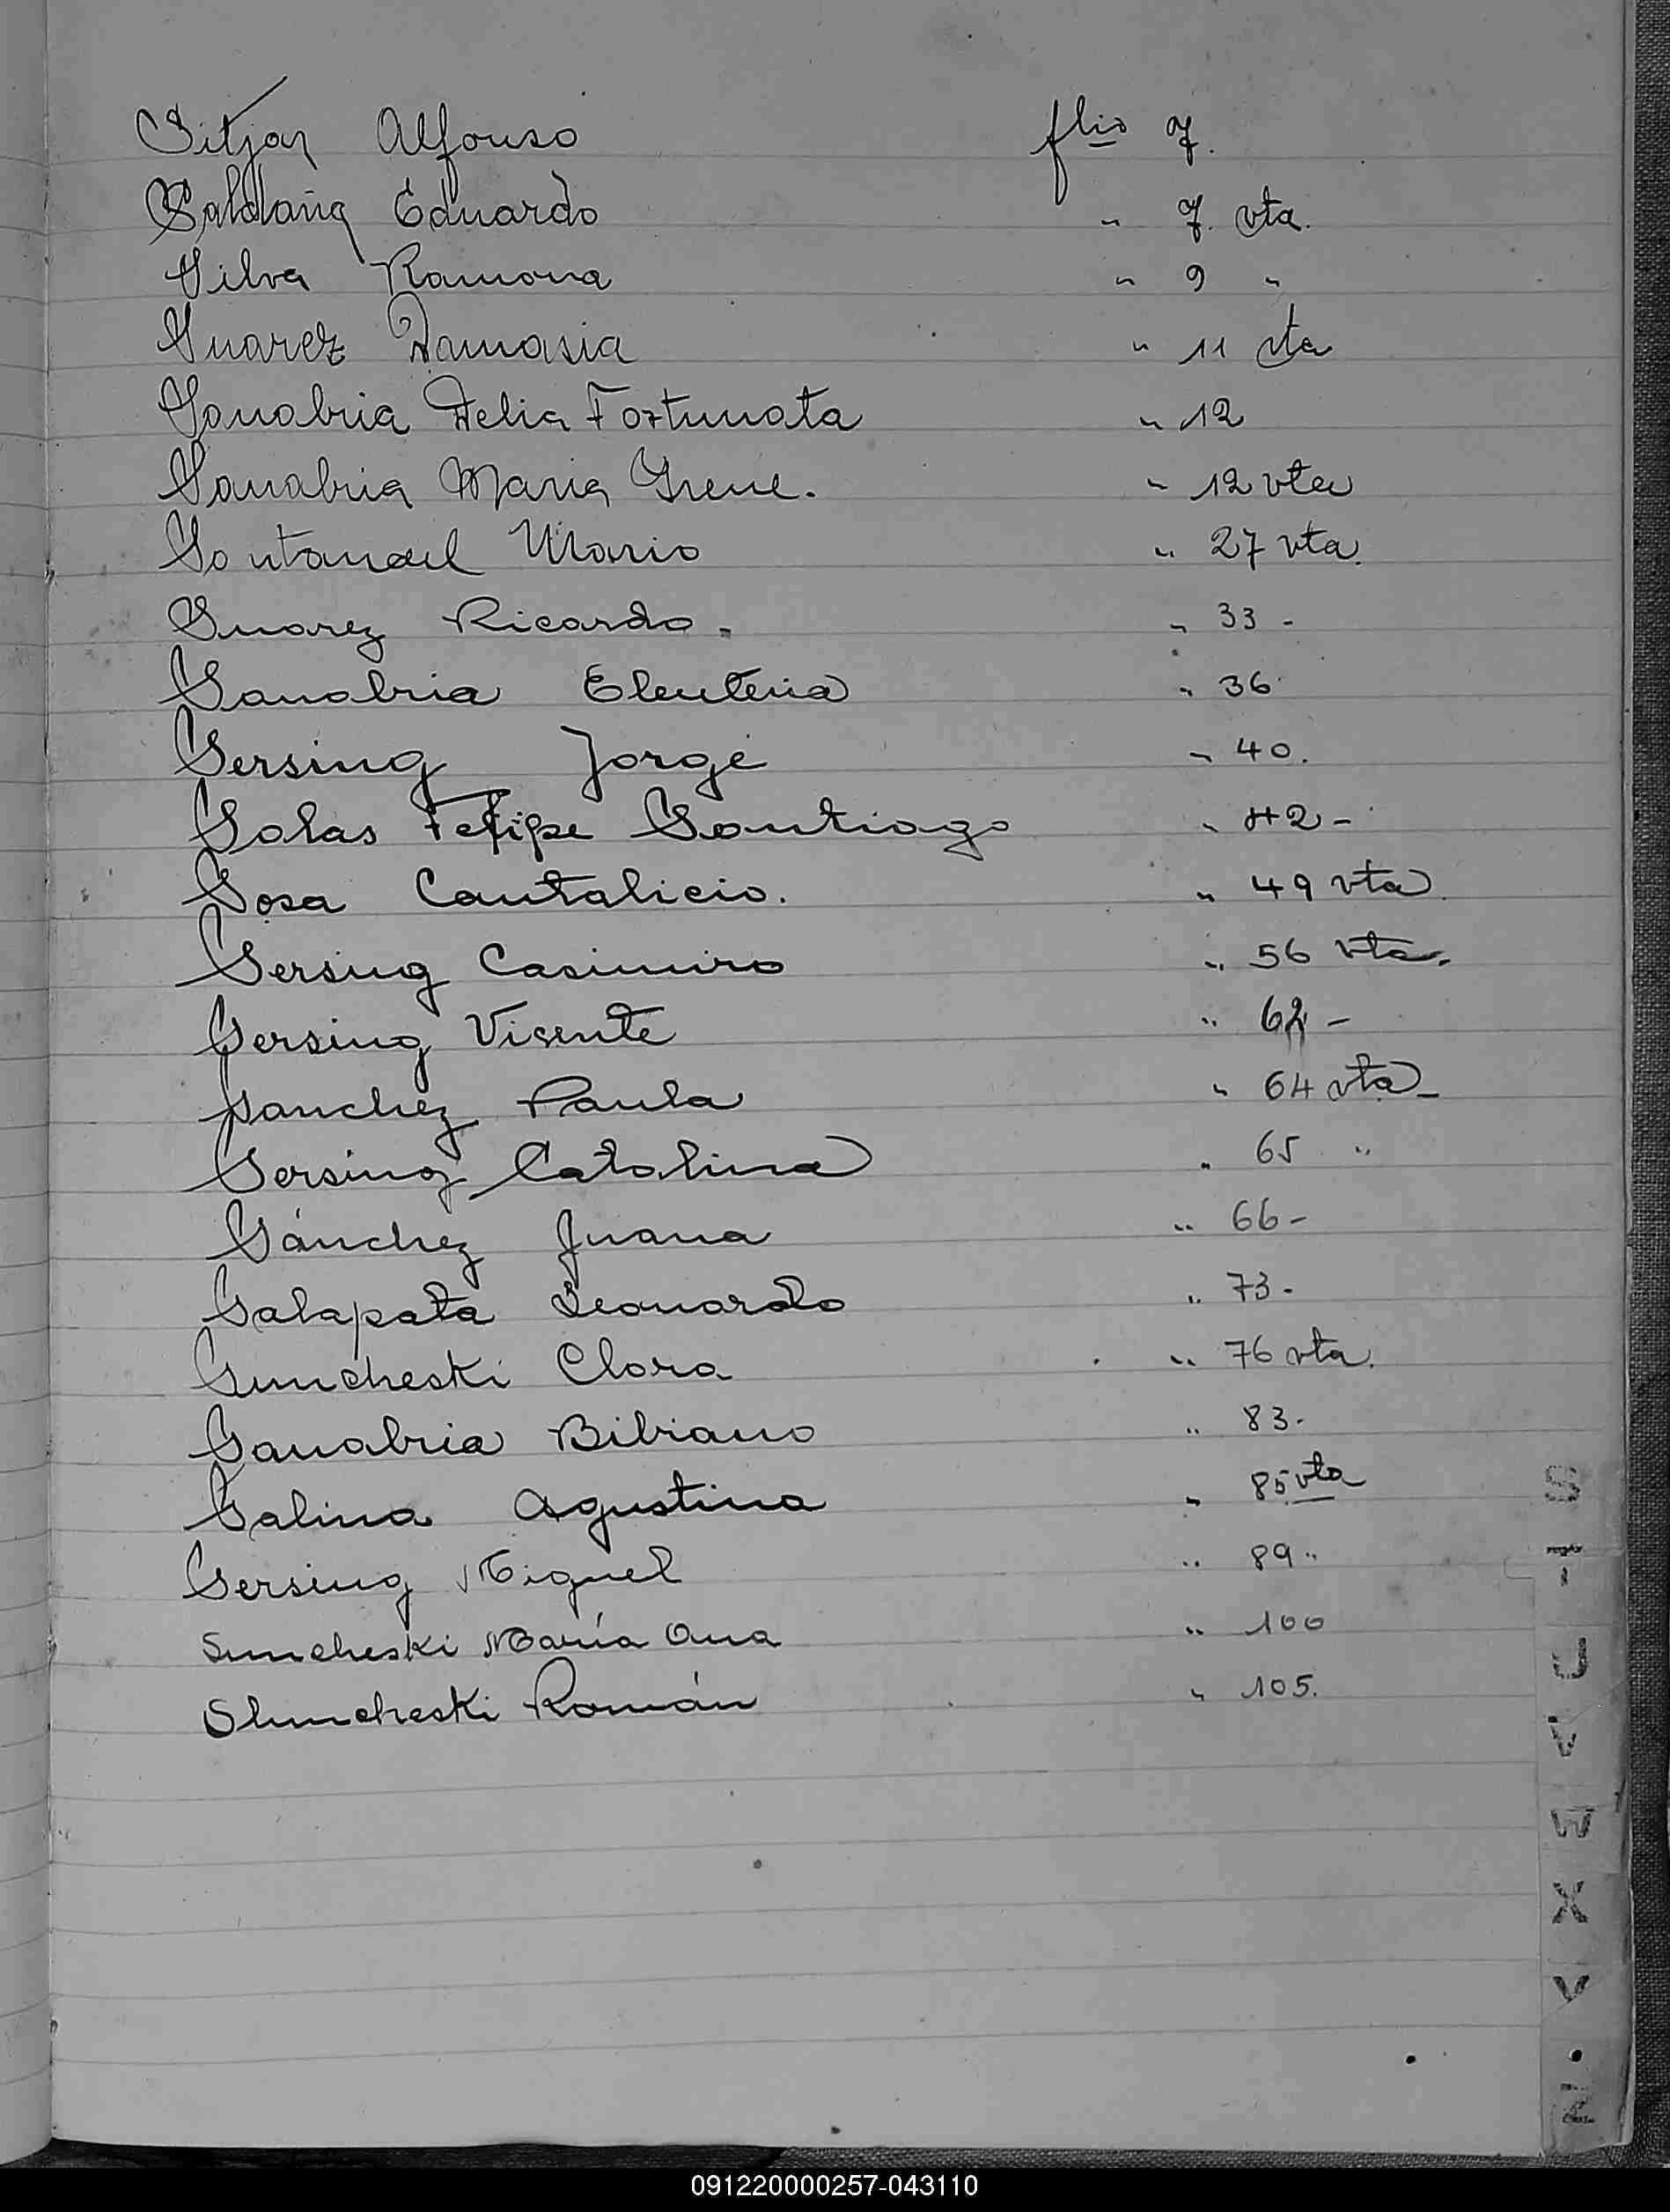 Sitjar Alfonso flio 7.
Saldaña Eduardo " 7. vta.
Silva Ramona " 9 "
Suarez Damasia " 11 vta
Sanabria Delia Fortunata " 12
Sanabria Maria Yrene. " 12 vta
Santandel Mario " 27 vta.
Suarez Ricardo. " 33 -
Sanabria Eleuteria " 36
Sersing Jorge " 40.
Salas Felipe Santiago " 42 -
Sosa Cantalicio. " 49 vta.
Sersing Casimiro " 56 vta.
Sersing Vicente " 62 -
Sanchez Paula " 64 vta -
Sersing Catalina " 65 "
Sánchez Juana " 66 -
Salapata Leonardo " 73 -
Suncheski Clara " 76 vta.
Sanabria Bibiano " 83 -
Salina Agustina " 85 vta
Sersing Miguel " 89 "
Suncheski María Ana " 100
Shuncheski Román " 105.
S
T
U
V
W
X
Y
Z
091220000257-043110